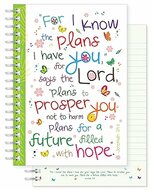 For I know
the plans
I have for
you,
says the Lord,
plans to
prosper you
not to harm
plans for a
future filled
with hope.